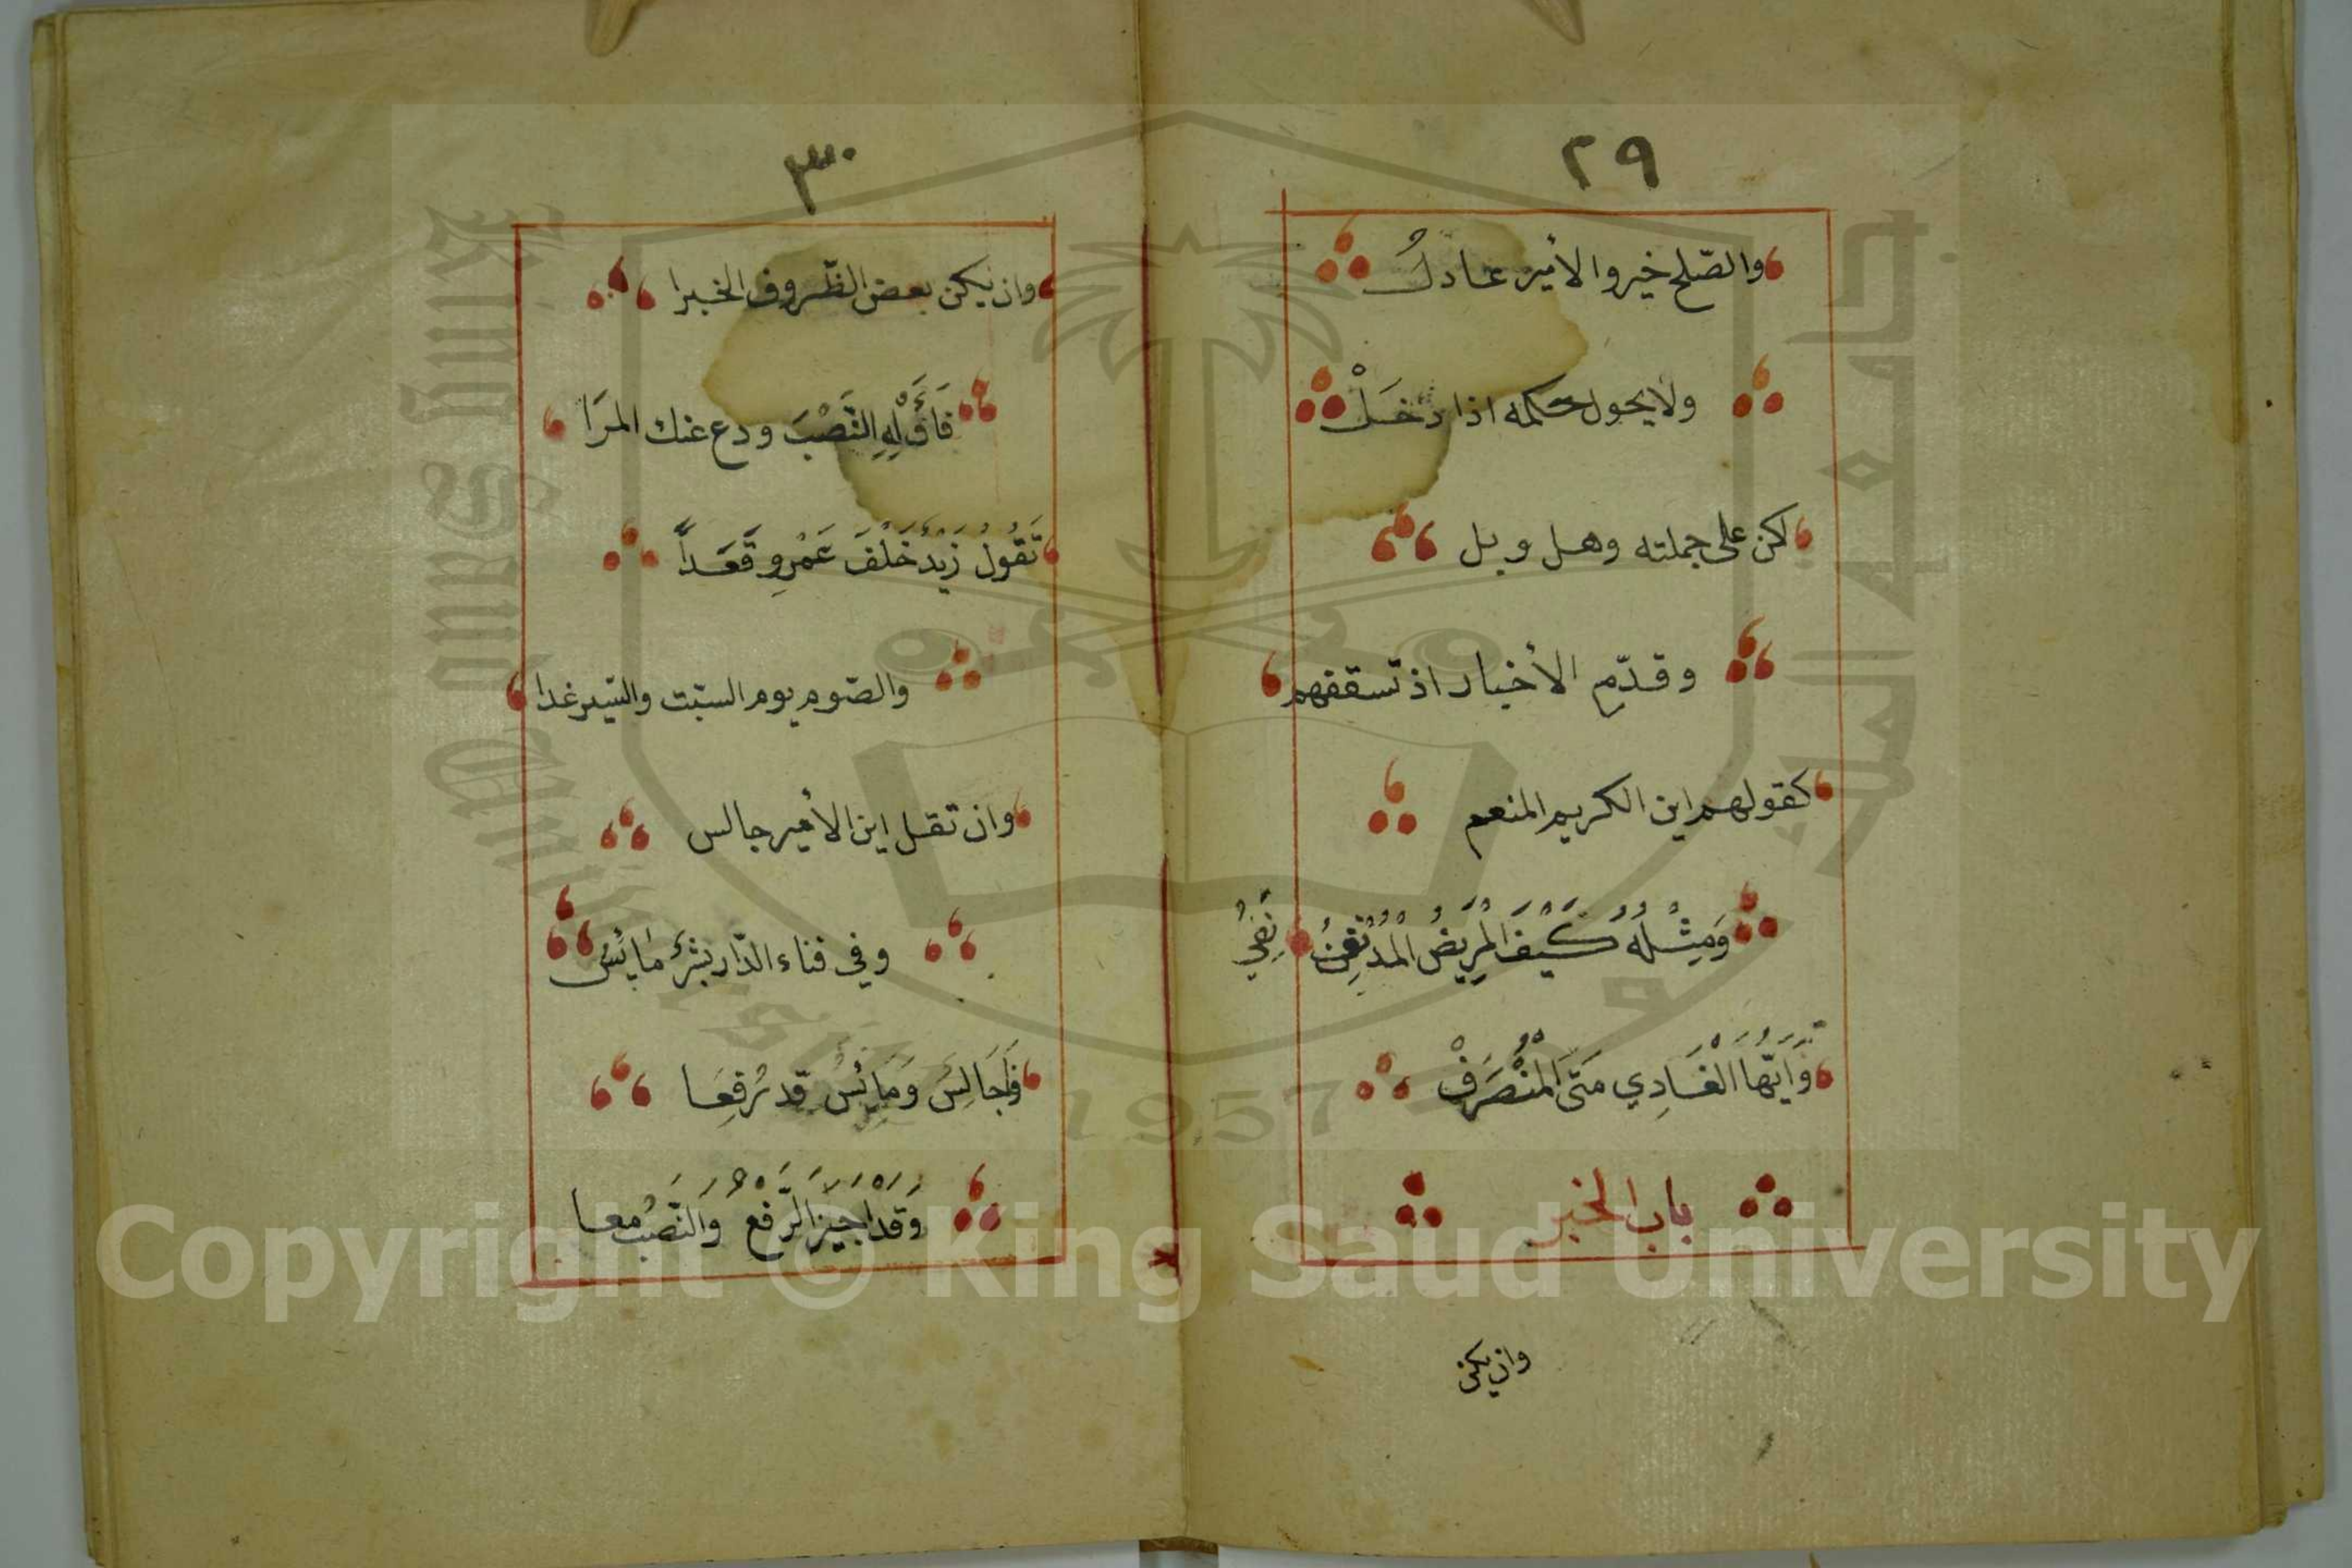 ٢٩
والصّلح خير والأمير عادلُ
ولا يحول حكمه اذا دخلْ
لكن على جملته وهل وبل
وقدّم الأخبار اذ تستفهم
كقولهم اين الكريم المنعم
وَمِثْلُهُ كَيْفَ الْمَرِيضُ الْمُدْنَفُ
وَأَيُّهَا الْغَادِي مَتَى الْمُنْصَرَفْ
باب الخبر
وان يكن
٣٠
وان يكن بعض الظّروف الخبرا
فَأَوْلِهِ النَّصْبَ ودع عنك المرَا
تَقُولُ زَيْدٌ خَلْفَ عَمْرٍو قَعَدَا
والصّوم يوم السّبت والسّير غدا
وان تقل اين الأمير جالس
وفي فناء الدّار بشرٌ مائسُ
فَجَالِسٌ وَمَائِسٌ قد رُفِعَا
وَقَدْ اجِيزَ الرَّفْعُ وَالنَّصْبُ معا
جامعة الملك سعود
King Saud University
1957
Copyright © King Saud University